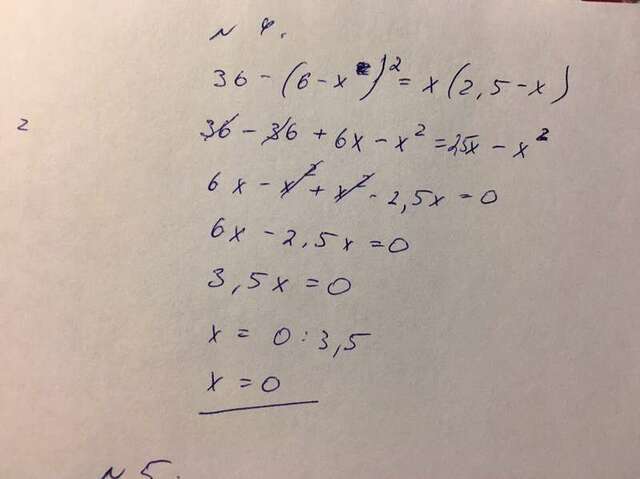 N 4.
36 - (6 - x)² = x(2,5 - x)
2
36 - 36 + 6x - x² = 2,5x - x²
6x - x² + x² - 2,5x = 0
6x - 2,5x = 0
3,5x = 0
x = 0 : 3,5
x = 0
N 5.